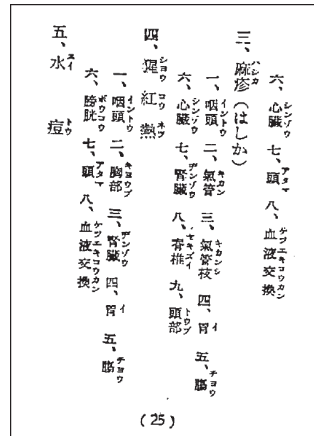 六、心臓 七、頭 八、血液交換
三、麻疹(はしか)
一、咽頭 二、氣管 三、氣管枝 四、胃 五、腸
六、心臓 七、腎臓 八、脊椎 九、頭部
四、猩紅熱
一、咽頭 二、胸部 三、腎臓 四、胃 五、腸
六、膀胱 七、頭 八、血液交換
五、水痘
(25)